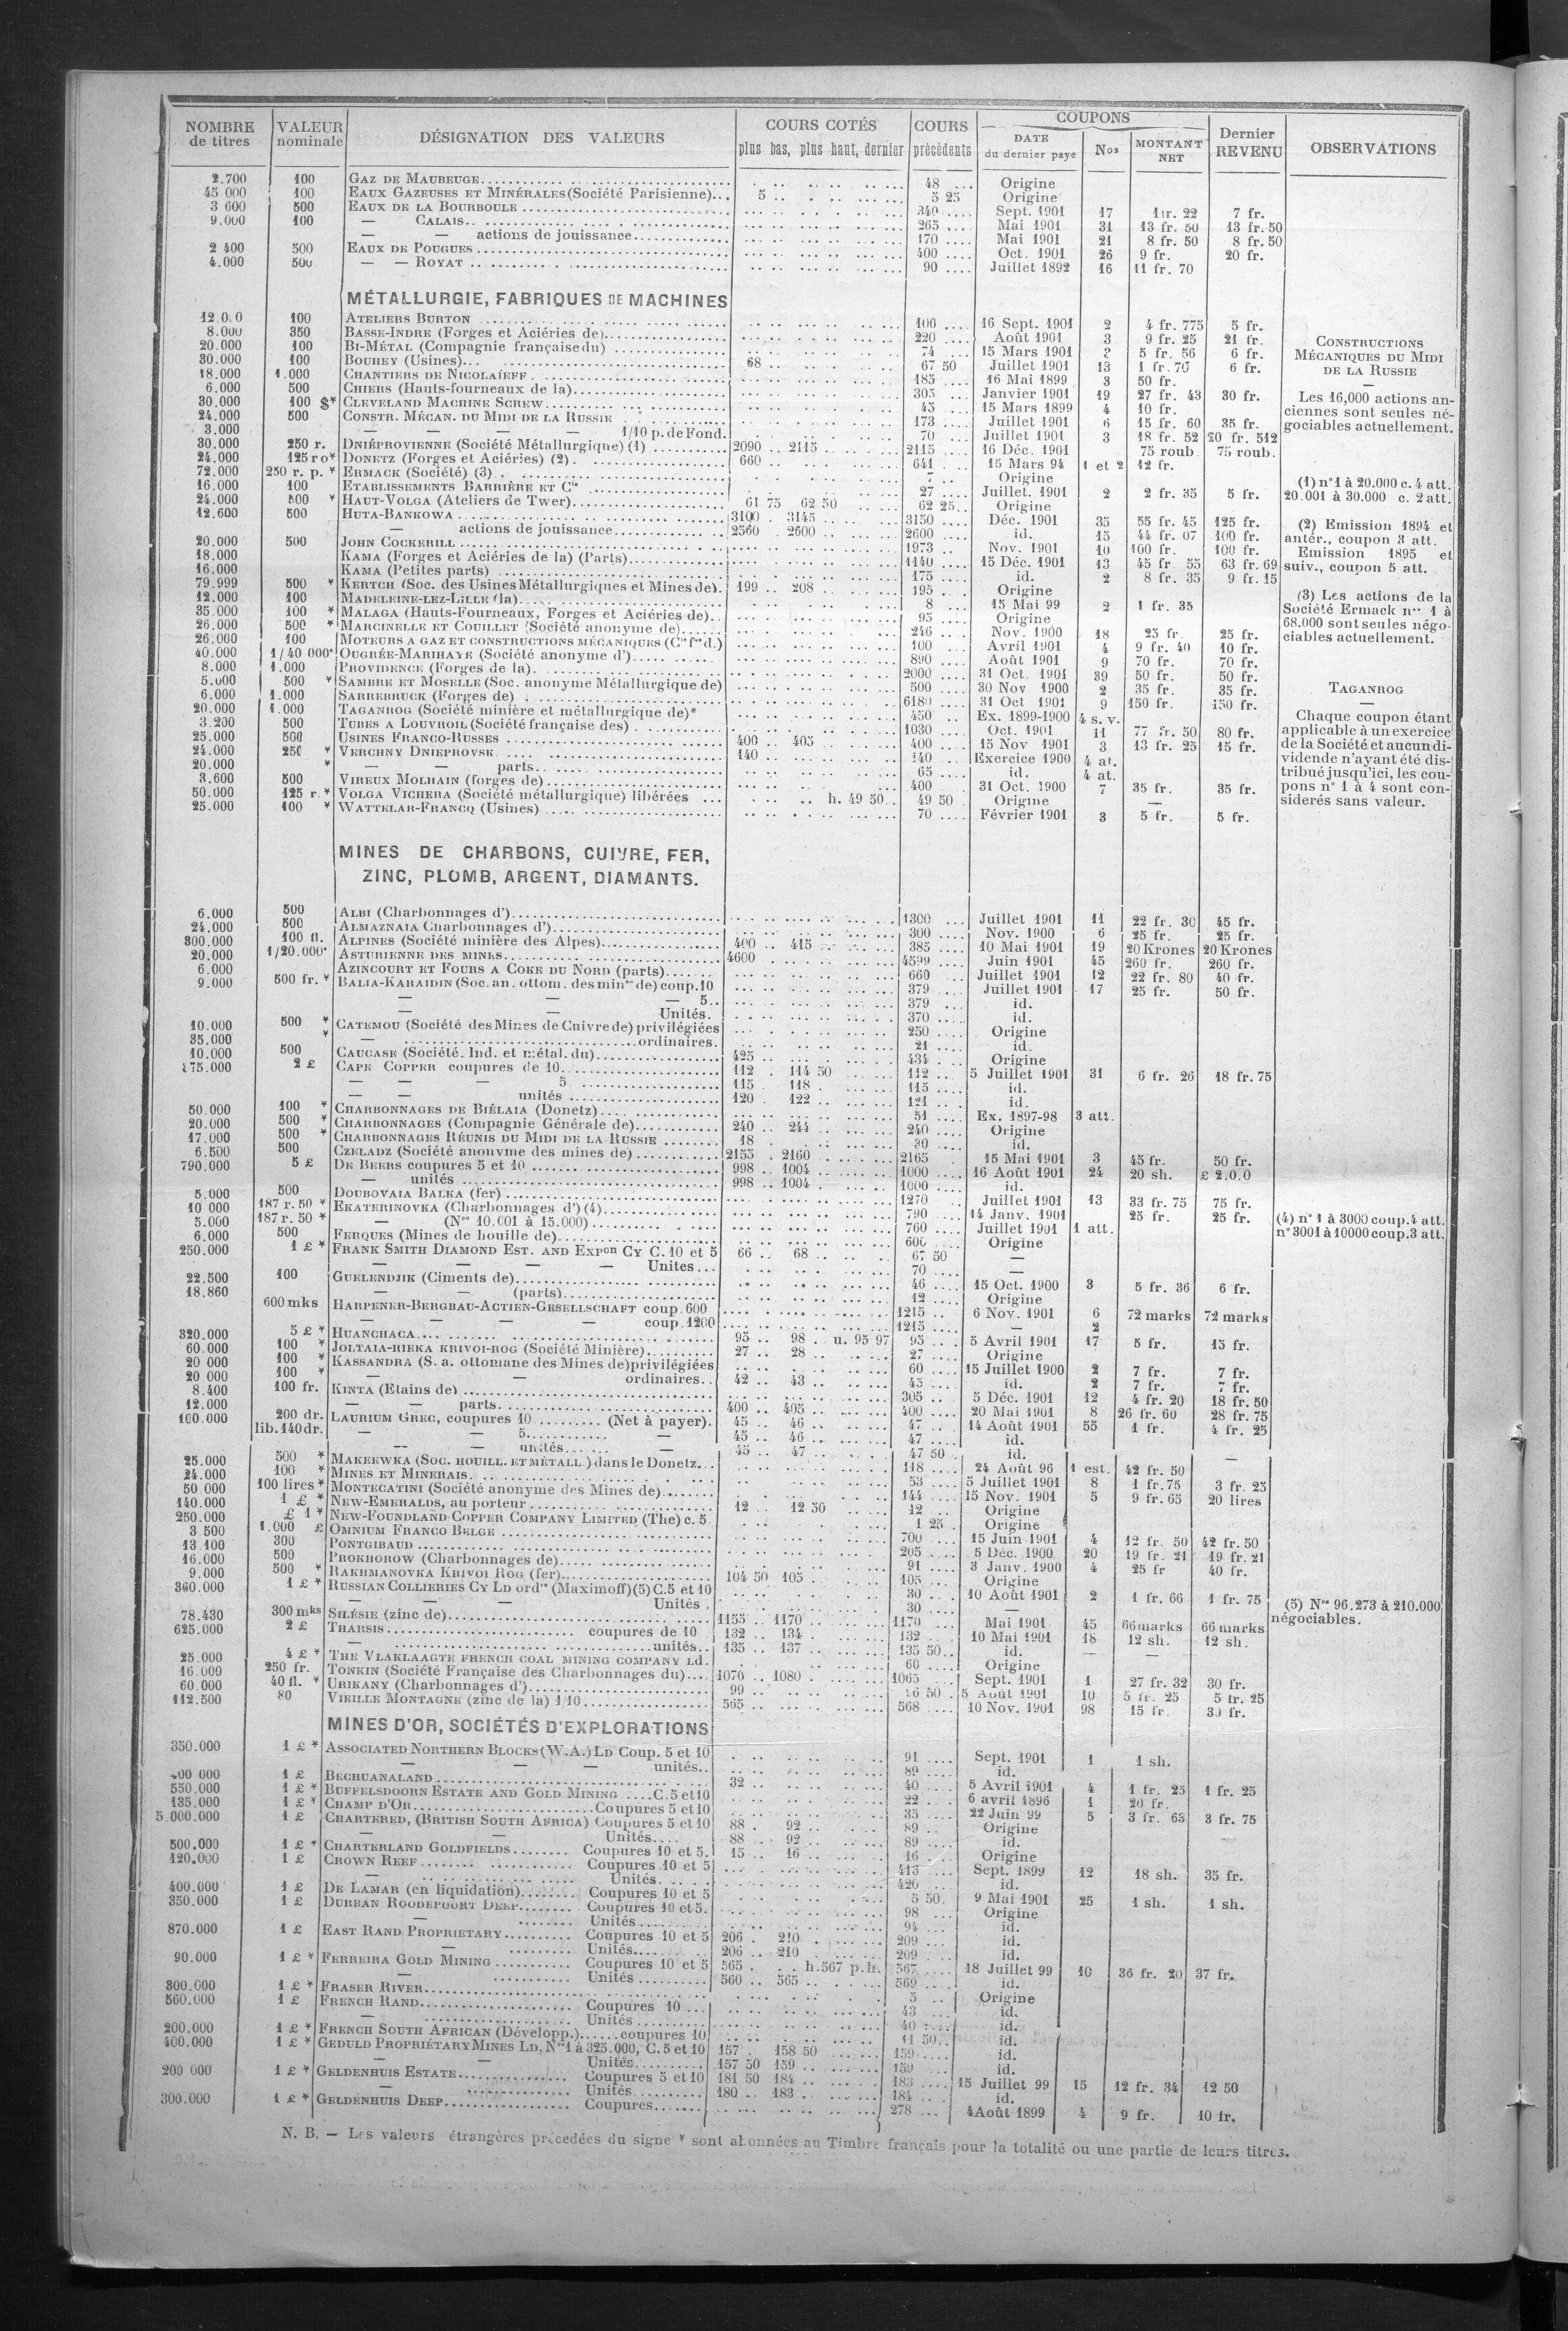 NOMBRE de titres | VALEUR nominale | DÉSIGNATION DES VALEURS | COURS COTÉS plus bas, plus haut, dernier | COURS précédents | COUPONS DATE du dernier paye | Nos | MONTANT NET | Dernier REVENU | OBSERVATIONS
2.700 100 GAZ DE MAUBEUGE 48 Origine
45 000 100 EAUX GAZEUSES ET MINÉRALES (Société Parisienne) 5 5 25 Origine
3 600 500 EAUX DE LA BOURBOULE 340 Sept. 1901 17 22 7 fr.
9.000 100 — CALAIS 265 Mai 1901 31 13 fr. 50 13 fr. 50
— — actions de jouissance 170 Mai 1901 21 8 fr. 50 8 fr. 50
2 400 500 EAUX DE POUGUES 400 Oct. 1901 26 9 fr. 20 fr.
4.000 500 — — ROYAT 90 Juillet 1892 16 11 fr. 70
MÉTALLURGIE, FABRIQUES DE MACHINES
100 ATELIERS BURTON 100 16 Sept. 1901 2 4 fr. 775 5 fr.
8.000 350 BASSE-INDRE (Forges et Aciéries de) 220 Août 1901 3 9 fr. 25 21 fr.
20.000 100 BI-MÉTAL (Compagnie française du) 74 15 Mars 1901 5 fr. 56 6 fr.
30.000 100 BOUHEY (Usines) 68 67 50 Juillet 1901 13 1 fr. 70 6 fr.
18.000 1.000 CHANTIERS DE NICOLAÏEFF 485 16 Mai 1899 3 50 fr.
6.000 500 CHIERS (Hauts-fourneaux de la) 305 Janvier 1901 19 27 fr. 43 30 fr.
30.000 100 $* CLEVELAND MACHINE SCREW 45 15 Mars 1899 4 10 fr.
24.000 500 CONSTR. MÉCAN. DU MIDI DE LA RUSSIE 173 Juillet 1901 6 15 fr. 60 35 fr.
3.000 — — — — 1/10 p. de Fond. 70 Juillet 1901 3 18 fr. 52 20 fr. 512
30.000 250 r. DNIÉPROVIENNE (Société Métallurgique) (1) 2090 2115 2115 16 Déc. 1901 75 roub 75 roub.
24.000 125 ro* DONETZ (Forges et Aciéries) (2) 660 641 15 Mars 94 1 et 2 12 fr.
72.000 250 r. p. * ERMACK (Société) (3) 7 Origine
16.000 100 ETABLISSEMENTS BARRIÈRE ET Cie 27 Juillet. 1901 2 2 fr. 35 5 fr.
24.000 500 * HAUT-VOLGA (Ateliers de Twer) 61 75 62 50 62 25 Origine
12.600 500 HUTA-BANKOWA 3100 3145 3150 Déc. 1901 35 55 fr. 45 125 fr.
— actions de jouissance 2560 2600 2600 id. 15 44 fr. 07 100 fr.
20.000 500 JOHN COCKERILL 1973 Nov. 1901 10 100 fr. 100 fr.
18.000 KAMA (Forges et Aciéries de la) (Parts) 1140 15 Déc. 1901 13 45 fr. 55 63 fr. 69
16.000 KAMA (Petites parts) 175 id. 2 8 fr. 35 9 fr. 15
79.999 500 * KERTCH (Soc. des Usines Métallurgiques et Mines de) 199 208 195 Origine
12.000 100 MADELEINE-LEZ-LILLE (la) 8 15 Mai 99 2 1 fr. 35
35.000 100 * MALAGA (Hauts-Fourneaux, Forges et Aciéries de) 95 Origine
26.000 500 * MARCINELLE ET COUILLET (Société anonyme de) 246 Nov. 1900 18 25 fr. 25 fr.
26.000 100 MOTEURS A GAZ ET CONSTRUCTIONS MÉCANIQUES 100 Avril 1901 4 9 fr. 40 10 fr.
40.000 1/40 000e OUGRÉE-MARIHAYE (Société anonyme d') 890 Août 1901 9 70 fr. 70 fr.
8.000 1.000 PROVIDENCE (Forges de la) 2000 31 Oct. 1901 39 50 fr. 50 fr.
5.000 500 * SAMBRE ET MOSELLE (Soc. anonyme Métallurgique de) 500 30 Nov 1900 2 35 fr. 35 fr.
6.000 1.000 SARREBRUCK (Forges de) 6180 31 Oct 1901 9 150 fr. 150 fr.
20.000 1.000 TAGANROG (Société minière et métallurgique de)* 450 Ex. 1899-1900 4 s. v.
3.200 500 TUBES A LOUVROIL (Société française des) 1030 Oct. 1901 11 77 fr. 50 80 fr.
25.000 500 USINES FRANCO-RUSSES 400 405 400 15 Nov 1901 3 13 fr. 25 15 fr.
24.000 250 * VERCHNY DNIEPROVSK 140 140 Exercice 1900 4 at.
20.000 * — — parts 65 id. 4 at.
3.600 500 VIREUX MOLHAIN (forges de) 400 31 Oct. 1900 7 35 fr. 35 fr.
50.000 125 r. * VOLGA VICHERA (Société métallurgique) libérées h. 49 50 49 50 Origine —
25.000 100 * WATTELAR-FRANCQ (Usines) 70 Février 1901 3 5 fr. 5 fr.
CONSTRUCTIONS
MÉCANIQUES DU MIDI
DE LA RUSSIE
Les 16,000 actions an-
ciennes sont seules né-
gociables actuellement.
(1) n° 1 à 20.000 c. 4 att.
20.001 à 30.000 c. 2 att.
(2) Emission 1894 et
antér., coupon 3 att.
Emission 1895 et
suiv., coupon 5 att.
(3) Les actions de la
Société Ermack nos 1 à
68.000 sont seules négo-
ciables actuellement.
TAGANROG
Chaque coupon étant
applicable à un exercice
de la Société et aucun di-
vidende n'ayant été dis-
tribué jusqu'ici, les cou-
pons n° 1 à 4 sont con-
sidérés sans valeur.
MINES DE CHARBONS, CUIVRE, FER,
ZINC, PLOMB, ARGENT, DIAMANTS.
6.000 500 ALBI (Charbonnages d') 1300 Juillet 1901 11 22 fr. 30 45 fr.
24.000 500 ALMAZNAIA Charbonnages d') 300 Nov. 1900 6 25 fr. 25 fr.
300.000 100 fl. ALPINES (Société minière des Alpes) 400 415 385 10 Mai 1901 19 20 Krones 20 Krones
20.000 1/20.000e ASTURIENNE DES MINES 4600 4599 Juin 1901 45 260 fr. 260 fr.
6.000 AZINCOURT ET FOURS A COKE DU NORD (parts) 660 Juillet 1901 12 22 fr. 80 40 fr.
9.000 500 fr. * BALIA-KARAIDIN (Soc. an. ottom. des mines de) coup. 10 379 Juillet 1901 17 25 fr. 50 fr.
— — — 5 379 id.
— — Unités. 370 id.
10.000 500 * CATEMOU (Société des Mines de Cuivre de) privilégiées 250 Origine
35.000 * — ordinaires. 21 id.
10.000 500 CAUCASE (Société. Ind. et métal. du) 425 434 Origine
175.000 2 £ CAPE COPPER coupures de 10 112 114 50 112 5 Juillet 1901 31 6 fr. 26 18 fr. 75
— — — 5 115 118 115 id.
— — unités 120 122 121 id.
50.000 100 * CHARBONNAGES DE BIÉLAIA (Donetz) 51 Ex. 1897-98 3 att.
20.000 500 * CHARBONNAGES (Compagnie Générale de) 240 244 240 Origine
17.000 500 * CHARBONNAGES RÉUNIS DU MIDI DE LA RUSSIE 18 30 id.
6.500 500 CZELADZ (Société anonyme des mines de) 2155 2160 2165 15 Mai 1901 3 45 fr. 50 fr.
790.000 5 £ DE BEERS coupures 5 et 10 998 1004 1000 16 Août 1901 24 20 sh. £ 2.0.0
— unités 998 1004 1000 id.
5.000 500 DOUBOVAIA BALKA (fer) 1270 Juillet 1901 13 33 fr. 75 75 fr.
10 000 187 r. 50 * EKATERINOVKA (Charbonnages d') (4) 790 14 Janv. 1901 25 fr. 25 fr.
5.000 187 r. 50 * — (Nos 10.001 à 15.000) 760 Juillet 1901 1 att.
6.000 500 FERQUES (Mines de houille de) 600 Origine
250.000 1 £ * FRANK SMITH DIAMOND EST. AND EXPon CY C. 10 et 5 66 68 67 50 —
— — — — Unites 70 —
22.500 100 GUELENDJIK (Ciments de) 46 15 Oct. 1900 3 5 fr. 36 6 fr.
18.860 — — (parts) 12 Origine
600 mks HARPENER-BERGBAU-ACTIEN-GESELLSCHAFT coup. 600 1215 6 Nov. 1901 6 72 marks 72 marks
— — — — coup. 1200 1215 — 2
320.000 5 £ * HUANCHACA 95 98 u. 95 97 95 5 Avril 1901 17 5 fr. 15 fr.
60.000 100 * JOLTAIA-RIEKA KRIVOI-ROG (Société Minière) 27 28 27 Origine
20 000 100 * KASSANDRA (S. a. ottomane des Mines de) privilégiées 60 15 Juillet 1900 2 7 fr. 7 fr.
20 000 100 * — — ordinaires 42 43 45 id. 2 7 fr. 7 fr.
8.400 100 fr. KINTA (Etains de) 305 5 Déc. 1901 12 4 fr. 20 18 fr. 50
12.000 — — parts 400 405 400 20 Mai 1901 8 26 fr. 60 28 fr. 75
100.000 200 dr. LAURIUM GREC, coupures 10 (Net à payer) 45 46 47 14 Août 1901 55 1 fr. 4 fr. 25
lib. 140 dr. — — 5 — 45 46 47 id.
— — unités — 45 47 47 50 id. —
25.000 500 * MAKEEWKA (SOC. HOUILL. ET MÉTALL.) dans le Donetz 118 24 Août 96 1 est. 42 fr. 50
24.000 100 * MINES ET MINERAIS 53 5 Juillet 1901 8 1 fr. 75 3 fr. 25
50 000 100 lires * MONTECATINI (Société anonyme des Mines de) 144 15 Nov. 1901 5 9 fr. 65 20 lires
140.000 1 £ * NEW-EMERALDS, au porteur 12 12 50 12 Origine
250.000 £ 1 * NEW-FOUNDLAND-COPPER COMPANY LIMITED (The) c. 5 1 25 Origine
3 500 1.000 £ OMNIUM FRANCO BELGE 700 15 Juin 1901 4 12 fr. 50 42 fr. 50
13 100 300 PONTGIBAUD 205 5 Déc. 1900 20 19 fr. 21 19 fr. 21
16.000 500 PROKHOROW (Charbonnages de) 91 3 Janv. 1900 4 25 fr 40 fr.
9.000 500 * RAKHMANOVKA KRIVOI ROG (fer) 104 50 105 105 Origine
360.000 1 £ * RUSSIAN COLLIERIES CY LD ordres (Maximoff) (5) C. 5 et 10 30 10 Août 1901 2 1 fr. 66 1 fr. 75
— — — Unités 30 —
78.430 300 mks SILÉSIE (zinc de) 1155 1170 1170 Mai 1901 45 66 marks 66 marks
625.000 2 £ THARSIS coupures de 10 132 134 132 10 Mai 1901 18 12 sh. 12 sh.
— unités 135 137 135 50 id. — —
25.000 4 £ * THE VLAKLAAGTE FRENCH COAL MINING COMPANY Ld. 60 Origine
16.000 250 fr. TONKIN (Société Française des Charbonnages du) 1076 1080 1065 Sept. 1901 1 27 fr. 32 30 fr.
60.000 40 fl. * URIKANY (Charbonnages d') 99 50 5 Août 1901 10 5 fr. 25 5 fr. 25
112.500 80 VIEILLE MONTAGNE (zinc de la) 1/10 565 568 10 Nov. 1901 98 15 fr. 30 fr.
(4) n° 1 à 3000 coup. 4 att.
n° 3001 à 10000 coup. 3 att.
(5) Nos 96.273 à 210.000
négociables.
MINES D'OR, SOCIÉTÉS D'EXPLORATIONS
350.000 1 £ * ASSOCIATED NORTHERN BLOCKS (W.A.) LD Coup. 5 et 10 91 Sept. 1901 1 1 sh.
— — — unités 89 id.
400 000 1 £ BECHUANALAND 32 40 5 Avril 1901 4 1 fr. 25 1 fr. 25
550.000 1 £ * BUFFELSDOORN ESTATE AND GOLD MINING C. 5 et 10 22 6 avril 1896 1 20 fr.
135.000 1 £ * CHAMP D'OR Coupures 5 et 10 35 22 Juin 99 5 3 fr. 63 3 fr. 75
5.000.000 1 £ CHARTERED, (BRITISH SOUTH AFRICA) Coupures 5 et 10 88 92 89 Origine
— — Unités 88 92 89 id.
500.000 1 £ * CHARTERLAND GOLDFIELDS Coupures 10 et 5 15 16 16 Origine
120.000 1 £ CROWN REEF Coupures 10 et 5 413 Sept. 1899 12 18 sh. 35 fr.
Unités 420 id.
400.000 1 £ DE LAMAR (en liquidation) Coupures 10 et 5 5 50 9 Mai 1901 25 1 sh. 1 sh.
350.000 1 £ DURBAN ROODEPOORT DEEP Coupures 10 et 5 98 Origine
— Unités 94 id.
870.000 1 £ EAST RAND PROPRIETARY Coupures 10 et 5 206 210 209 id.
— Unités 206 210 209 id.
90.000 1 £ * FERREIRA GOLD MINING Coupures 10 et 5 565 h. 567 p. lr. 567 18 Juillet 99 10 36 fr. 20 37 fr.
— Unités 560 565 569 id.
300.000 1 £ * FRASER RIVER 5 Origine
560.000 1 £ FRENCH RAND Coupures 10 43 id.
— Unités 40 id.
200.000 1 £ * FRENCH SOUTH AFRICAN (Développ.) coupures 10 11 50 id.
400.000 1 £ * GEDULD PROPRIÉTARY MINES LD, Nos 1 à 325.000, C. 5 et 10 157 158 50 159 id.
— — Unités 157 50 159 159 id.
200 000 1 £ * GELDENHUIS ESTATE Coupures 5 et 10 181 50 184 183 15 Juillet 99 15 12 fr. 34 12 50
— Unités 180 183 184 id.
300.000 1 £ * GELDENHUIS DEEP Coupures 278 4 Août 1899 4 9 fr. 10 fr.
N. B. — Les valeurs étrangères précédées du signe * sont abonnées au Timbre français pour la totalité ou une partie de leurs titres.